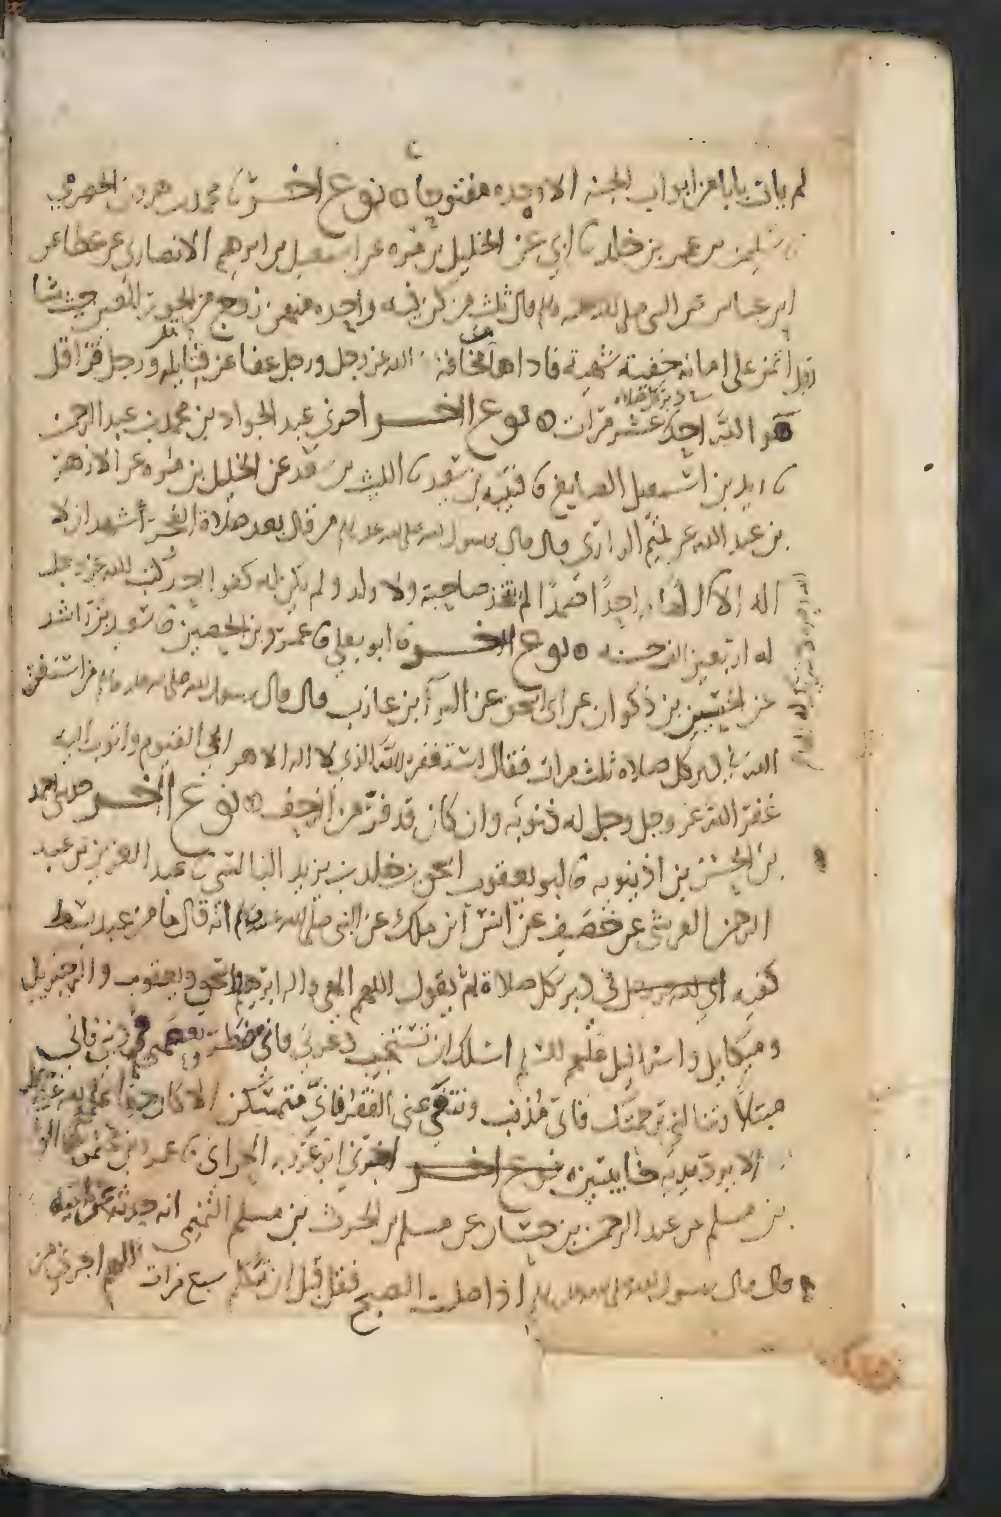 لم يات بابا من ابواب الجنه الا وجده مفتوحا نوع اخر نا محمد بن هرون الحضرمي
نا سليمن بن عمر بن خلد نا ابي عن الخليل بن مره عن اسمعيل بن ابرهيم الانصاري عن عطا عن
ابن عباس عن النبي صلى الله عليه وسلم قال ثلث من كن فيه واحده منهن زوج من الحور العين حيث شا
رجل ائتمن على امانه خفية شهية فاداها مخافة الله عز وجل ورجل عفا عن قاتله ورجل قرا قل
هو الله احد عشر مرات نوع اخر اخبرني عبد الجواد بن محمد بن عبد الرحمن
نا يزيد بن اسمعيل الصايغ نا قتيبه بن سعيد نا الليث بن سعد عن الخليل بن مره عن الازهر
بن عبد الله عن تميم الداري قال قال رسول الله صلى الله عليه وسلم من قال بعد صلاة الفجر اشهد ان لا
اله الا الله الها واحدا صمدا لم يتخذ صاحبة ولا ولد ولم يكن له كفوا احد كتب الله عز وجل
له اربعين الف حسنه نوع اخر نا ابو يعلي نا عمرو بن الحصين نا سعيد بن راشد
عن الحسين بن ذكوان عن ابي اسحق عن البرآ بن عازب قال قال رسول الله صلى الله عليه وسلم من استغفر
الله في دبر كل صلاه ثلث مرات فقال استغفر الله الذي لا اله الا هو الحي القيوم واتوب اليه
غفر الله عز وجل له ذنوبه وان كان قد فر من الزحف نوع اخر حدثني احمد
بن الحسن بن اذينويه نا ابو يعقوب اسحق بن خلد بن يزيد البالسي نا عبد العزيز بن عبد
الرحمن القرشي عن خصيف عن انس بن ملك عن النبي صلى الله عليه وسلم انه قال ما من عبد بسط
كفيه في دبر كل صلاة ثم يقول اللهم الهي واله ابرهيم واسحق ويعقوب واله جبريل
وميكايل واسرافيل عليهم السلم اسلك ان تستجيب دعوتي فاني مضطر وتعصمني في ديني فاني
مبتلا وتنالني برحمتك فاني مذنب وتنفي عني الفقر فاني متمسكن الا كان حقا على الله عز وجل
الا يرد يديه خايبتين نوع اخر اخبرني ابو عروبه الحراني نا
بن مسلم عن عبد الرحمن بن حسان عن مسلم بن الحرث بن مسلم التميمي انه حدثه عن ابيه
قال قال رسول الله صلى الله عليه وسلم اذا صليت الصبح فقل قبل ان تتكلم سبع مرات اللهم اجرني من